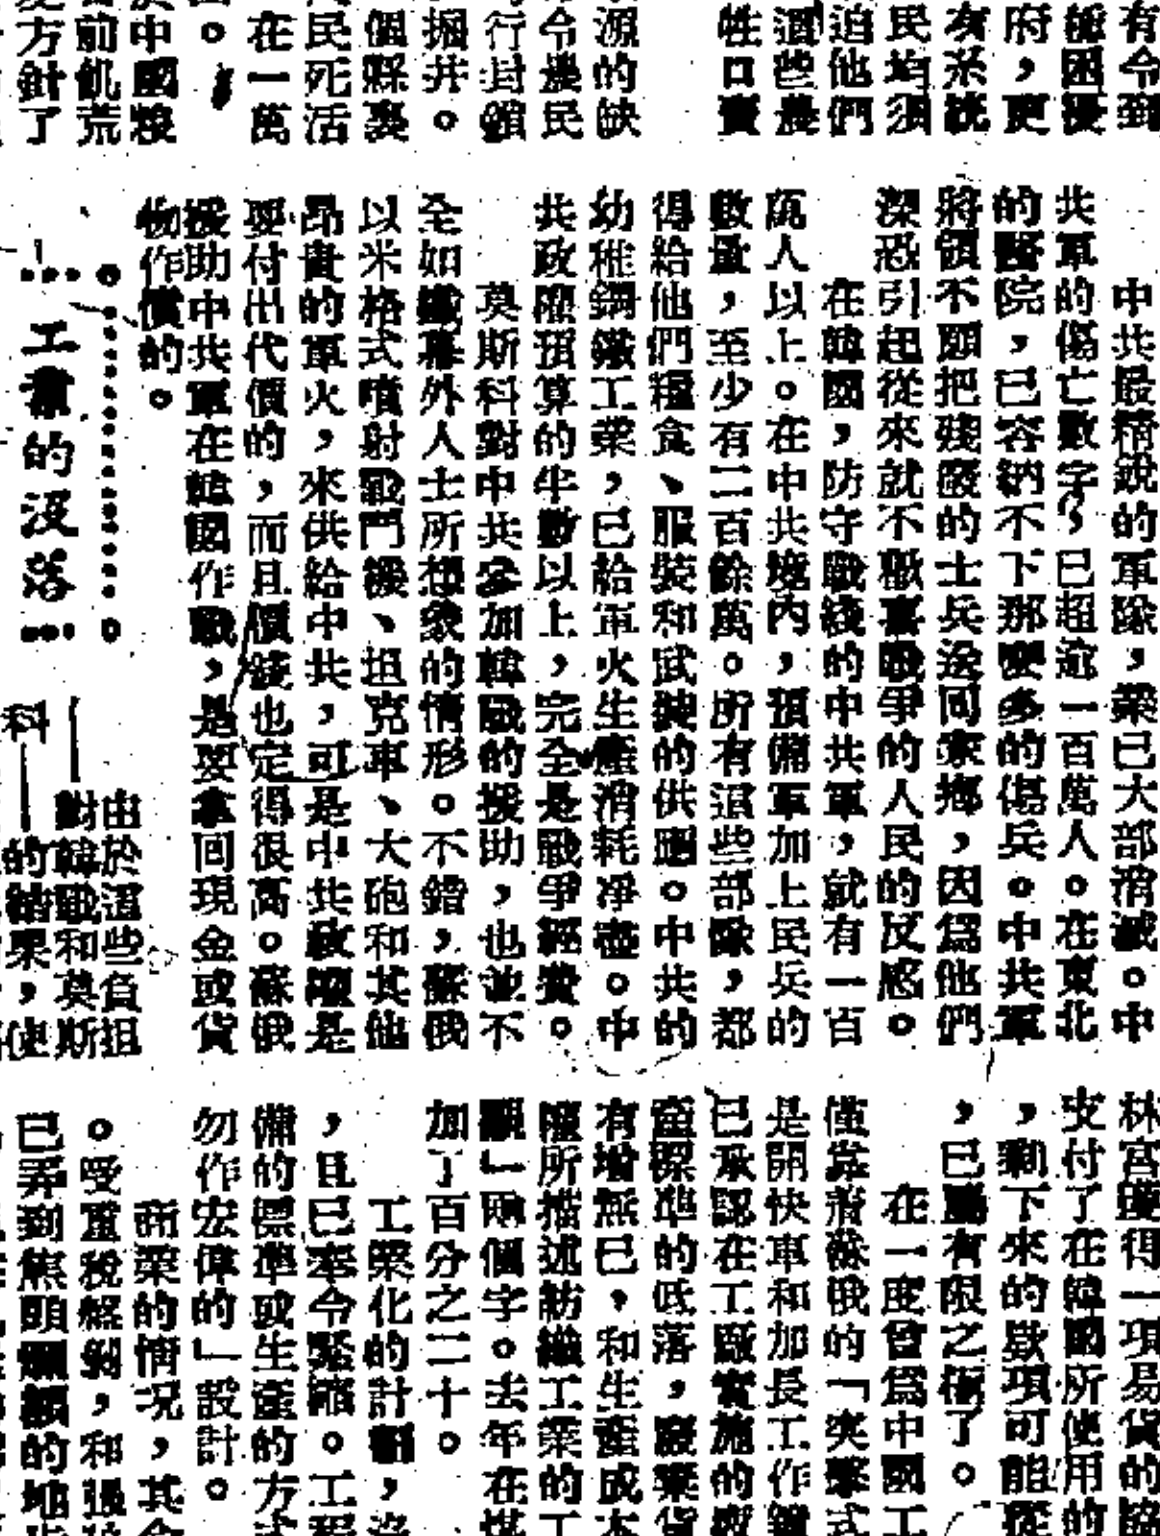 有令到
極困擾
府，更
有系統
民均須
迫他們
這些農
牲口賣
源的缺
令農民
行封鎖
掘井。
個縣裏
民死活
在一萬
中國糧
前飢荒
方針了
中共最精銳的軍隊，業已大部消滅。中
共軍的傷亡數字，已超逾一百萬人。在東北
的醫院，已容納不下那麼多的傷兵。中共軍
將領不願把殘廢的士兵送回家鄉，因爲他們
深恐引起從來就不歡喜戰爭的人民的反感。
在韓國，防守戰綫的中共軍，就有一百
萬人以上。在中共境內，預備軍加上民兵的
數量，至少有二百餘萬。所有這些部隊，都
得給他們糧食、服裝和武裝的供應。中共的
幼稚鋼鐵工業，已給軍火生產消耗凈盡。中
共政府預算的半數以上，完全是戰爭經費。
莫斯科對中共參加韓戰的援助，也並不
全如鐵幕外人士所想象的情形。不錯，蘇俄
以米格式噴射戰鬥機、坦克車、大砲和其他
昂貴的軍火，來供給中共，可是中共政權是
要付出代價的，而且價錢也定得很高。蘇俄
援助中共軍在韓國作戰，是要拿回現金或貨
物作價的。
工業的沒落
由於這些負担
對韓戰和莫斯
科
的結果，使
林官慶得一項易貨的協
支付了在韓國所使用的
，剩下來的款項可能從
，已屬有限之極了。
在一度曾爲中國工
僅靠着蘇俄的「突擊式
是開快車和加長工作鐘
已承認在工廠實施的
產標準的低落，廢棄貨
有增無已，和生產成本
所描述紡織工業的工
」兩個字。去年在煤
加了百分之二十。
工業化的計劃，
，且已奉令緊縮。工程
備的標準或生產的方式
勿作宏偉的」設計。
商業的情况，其
。受重稅熬剝，和
已弄到焦頭爛額的地步